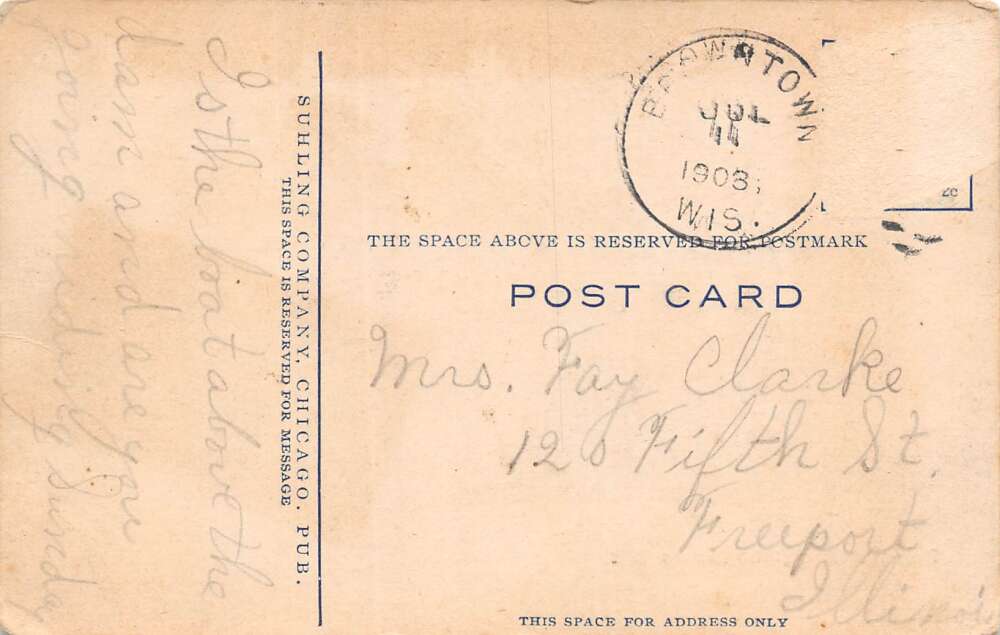 Is the boat above the
dam and are you
going
Sunday
SUHLING COMPANY, CHICAGO, PUB.
THIS SPACE IS RESERVED FOR MESSAGE
BROWNTOWN
JUL
11
1908
WIS.
THE SPACE ABOVE IS RESERVED FOR POSTMARK
POST CARD
Mrs. Fay Clarke
120 Fifth St.
Freeport
Illinois
THIS SPACE FOR ADDRESS ONLY